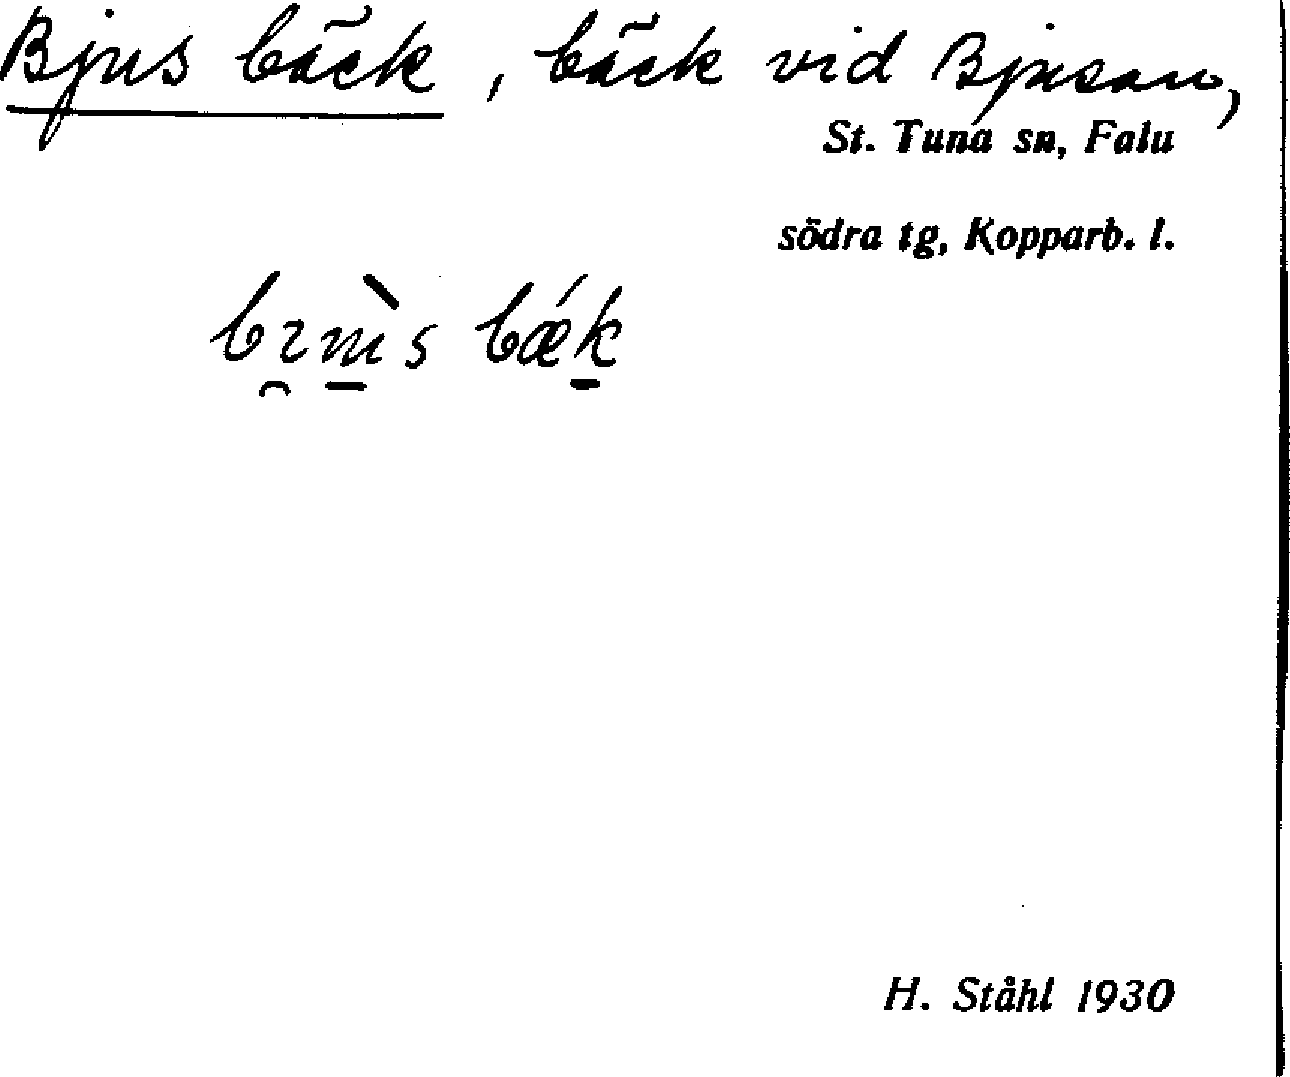 Bjus bäck, bäck vid Bjusan,
St. Tuna sn, Falu
södra tg, Kopparb. l.
bæ̀k
H. Ståhl 1930